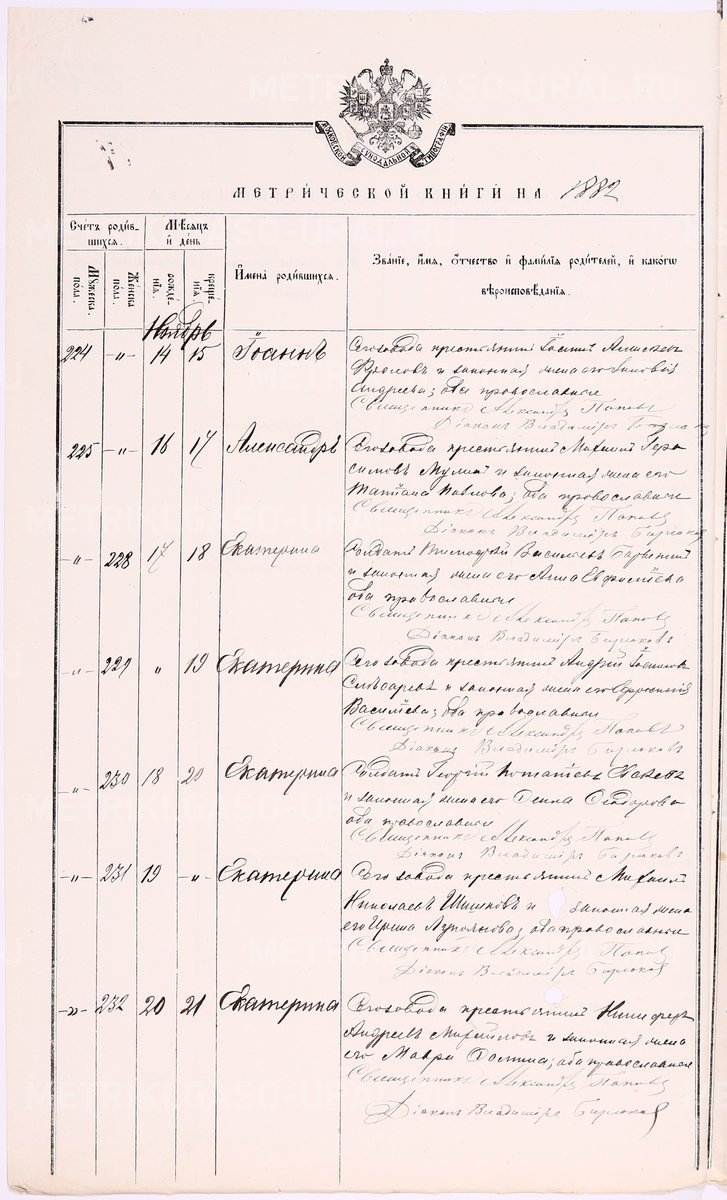 МОСКОВСКОЙ СѴНОДАЛЬНОЙ ТИПОГРАФІИ
МЕТРИ́ЧЕСКОЙ КНИ́ГИ НА 1882
Сче́тъ роди́в-
шихся.
Мꙋ́жеска
пола.
Же́нска
пола.
М҃ѣсяцъ
и҆ де́нь
рожде́-
нїѧ.
креще́-
нїѧ.
И҆мена̀ роди́вшихся.
Зва́нїе, и҆́мѧ, ѻ҆́тчество и҆ фами́лїѧ роди́телей, и҆ како́гѡ
вѣроисповѣ́данїѧ.
Ноябрь
224 -„- 14 15 Іоаннъ
Сего завода крестьянинъ Іоаннъ Алексѣевъ
Фроловъ и законная жена его
Андреева; оба православные
Священникъ Александръ Поповъ
Діаконъ Владимiръ
225 -„- 16 17 Александръ
Сего завода крестьянинъ Михаилъ Гера-
симовъ и законная жена его
Татiана Павлова; оба православные
Священникъ Александръ Поповъ
Діаконъ Владимiръ Бирюковъ
-„- 228 17 18 Екатерина
Солдатъ Василiевъ
и законная жена его Анна
оба православные
Священникъ Александръ Поповъ
Діаконъ Владимiръ Бирюковъ
-„- 229 „ 19 Екатерина
Сего завода крестьянинъ Андрей
Слѣсаревъ и законная жена его
Василiева; оба православные
Священникъ Александръ Поповъ
Діаконъ Владимiръ Бирюковъ
-„- 230 18 20 Екатерина
Солдатъ Георгій
и законная жена его Ѳеодорова
оба православные
Священникъ Александръ Поповъ
Діаконъ Владимiръ Бирюковъ
-„- 231 19 -„- Екатерина
Сего завода крестьянинъ Михаилъ
Николаевъ Шишковъ и законная жена
его Ирина оба православные
Священникъ Александръ Поповъ
Діаконъ Владимiръ Бирюковъ
-„- 232 20 21 Екатерина
Сего завода крестьянинъ Никифоръ
Андреевъ Михайловъ и законная жена
его Мавра Фомина; оба православные
Священникъ Александръ Поповъ
Діаконъ Владимiръ Бирюковъ